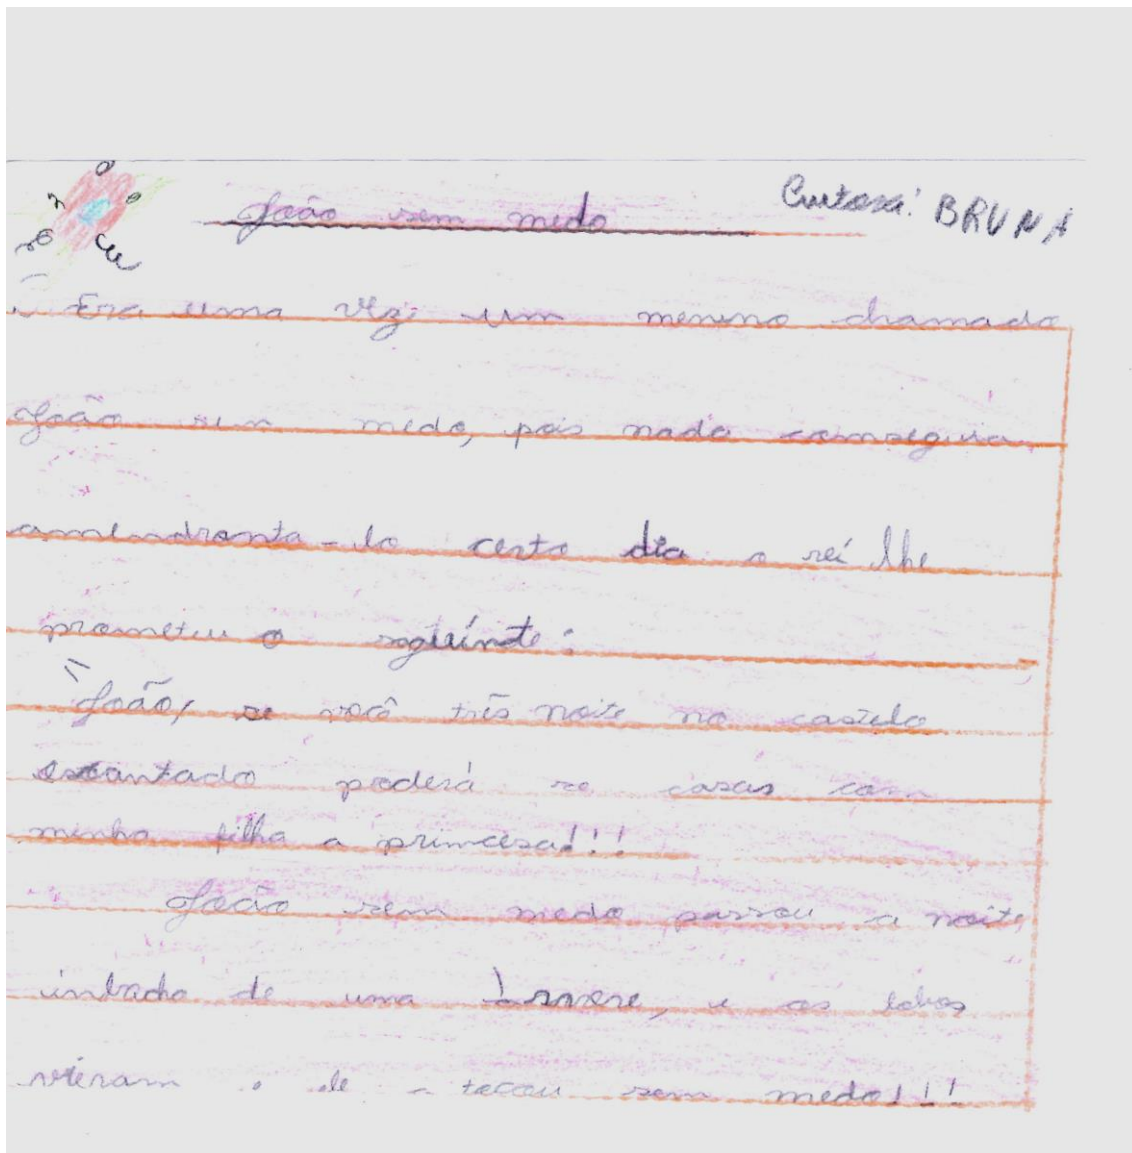 João sem medo
BRUNA
Era uma vez um menino chamado
João sem medo, pois nada comseguia
amendronta-lo certo dia o rei lhe
prometeu o seguinte:
João, se você três noite no castelo
poderá se casar com
minha filha a princesa!!!
João sem medo passou a noite
de uma e os lobos
vieram e ele atacou sem medo!!!